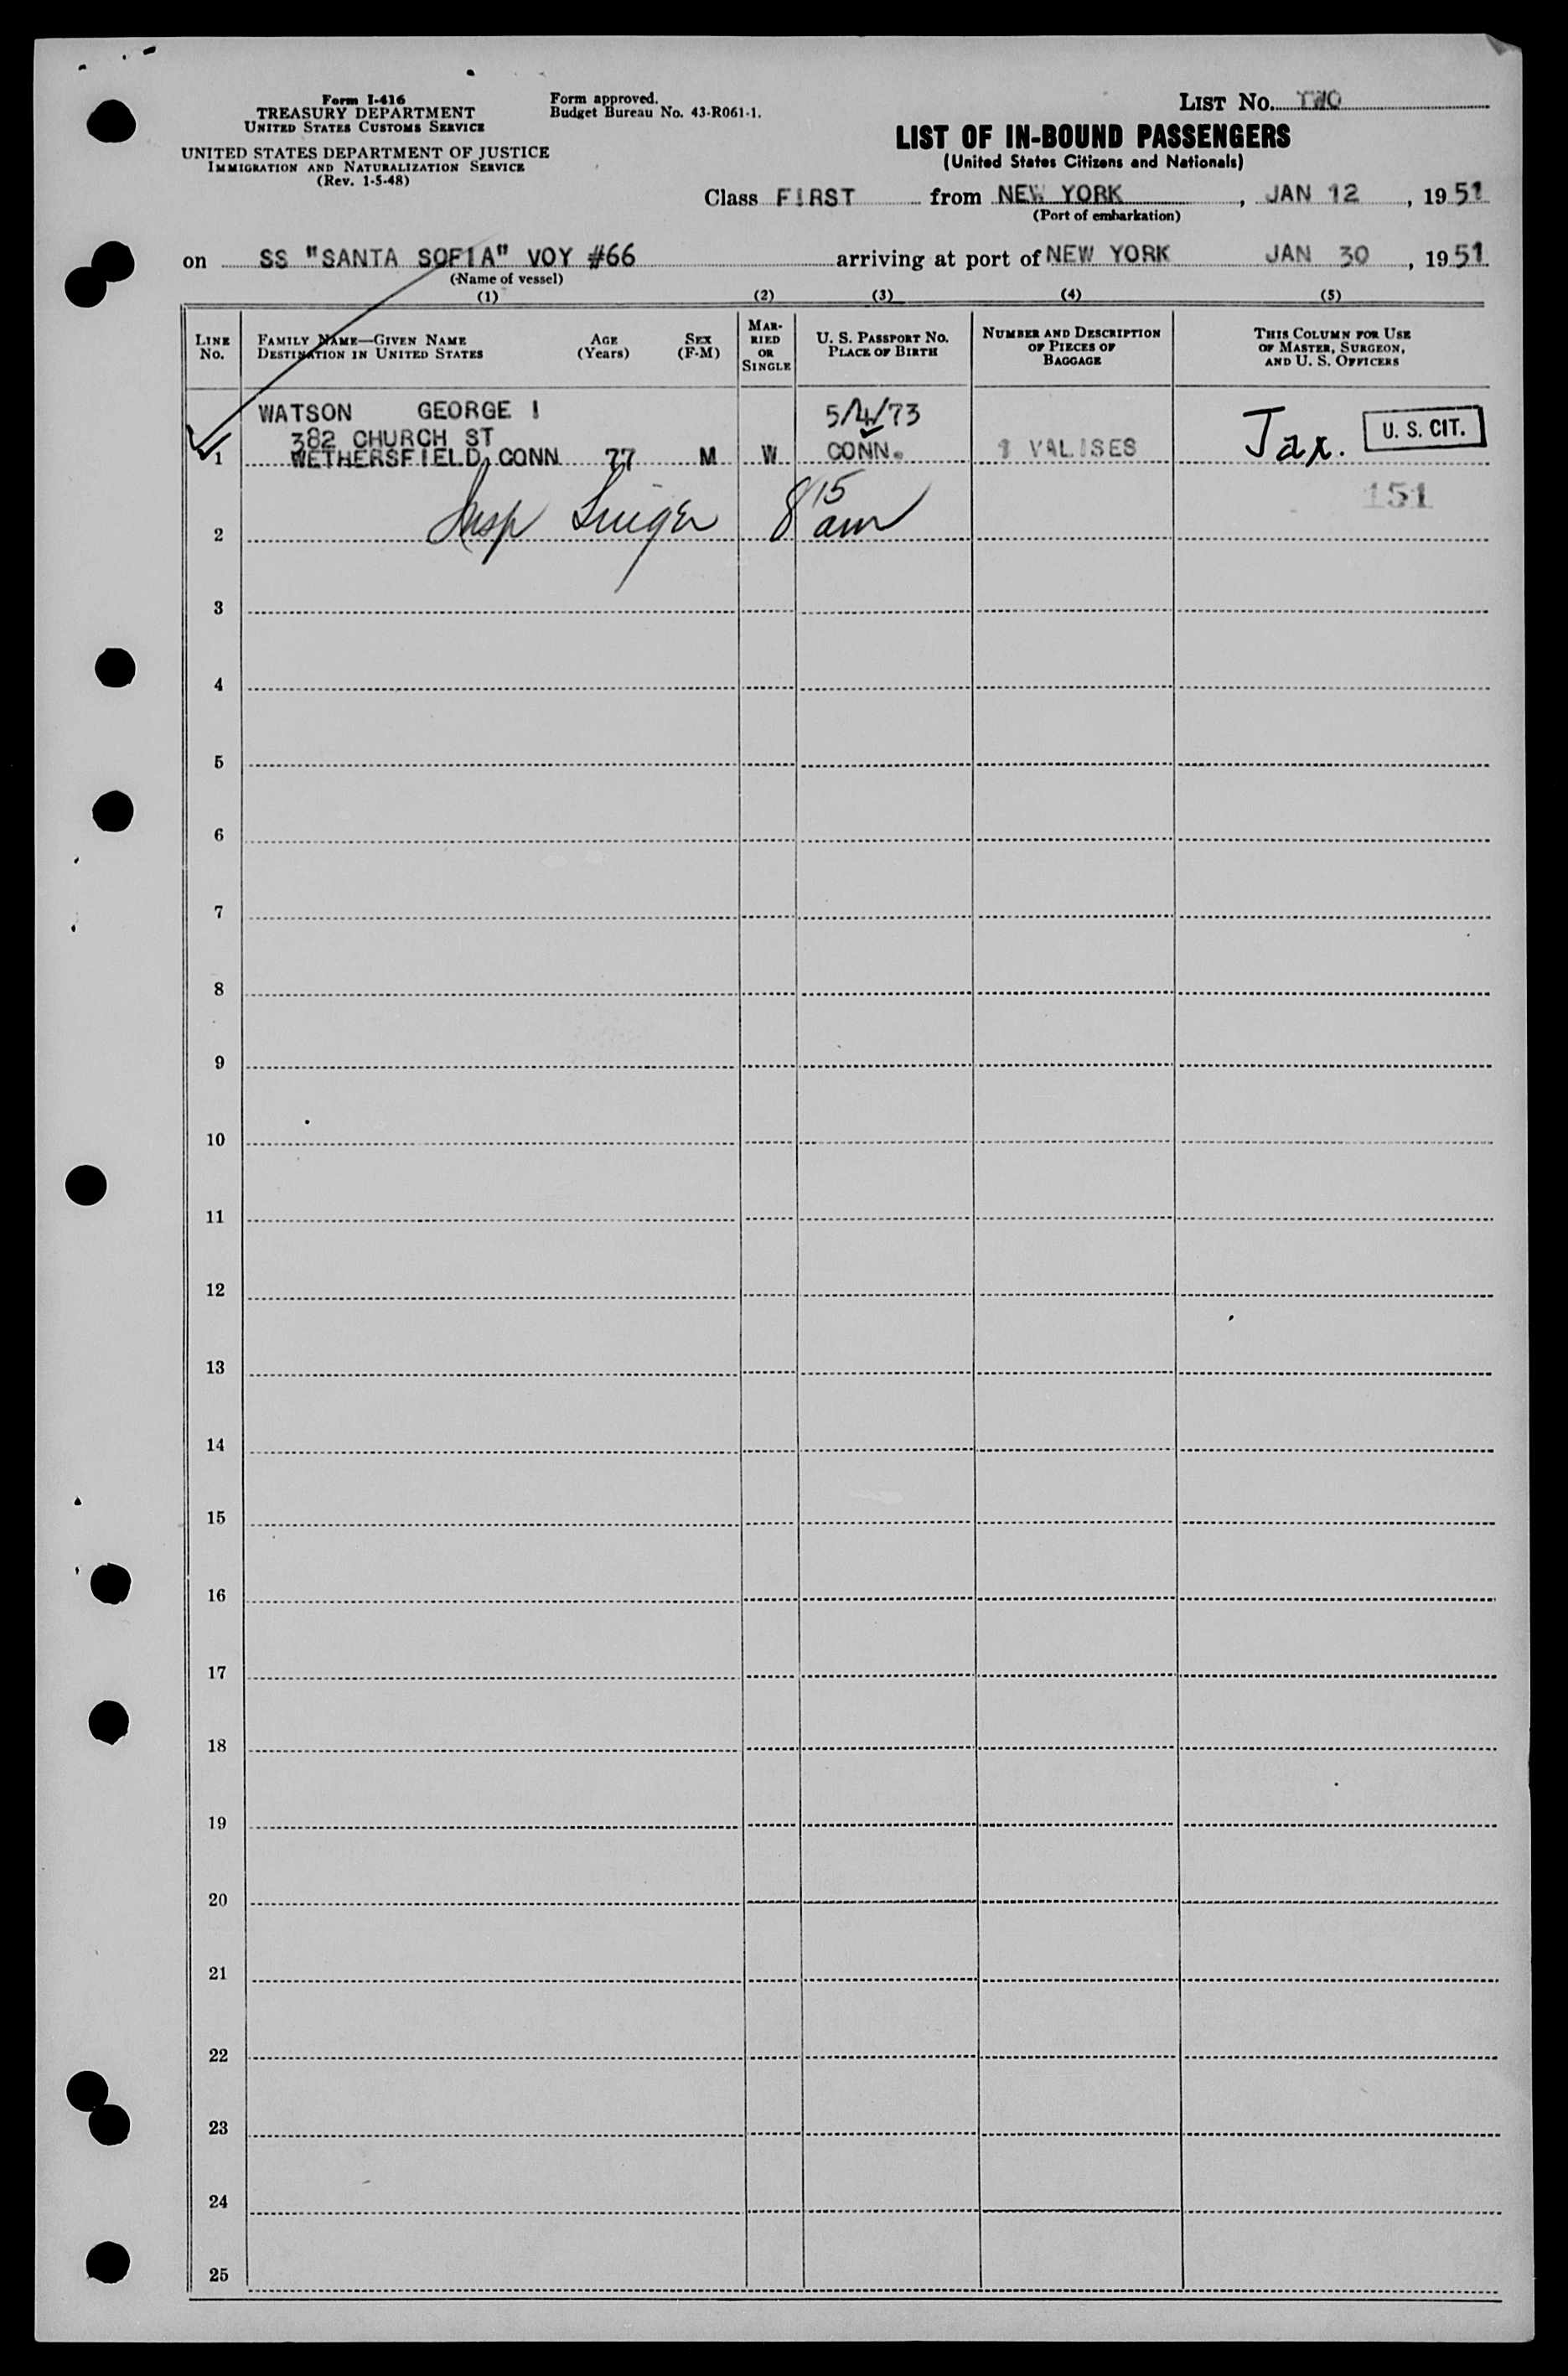 Form I-416
TREASURY DEPARTMENT
UNITED STATES CUSTOMS SERVICE
UNITED STATES DEPARTMENT OF JUSTICE
IMMIGRATION AND NATURALIZATION SERVICE
(Rev. 1-5-48)
Form approved.
Budget Bureau No. 43-R061-1.
LIST No. TWO
LIST OF IN-BOUND PASSENGERS
(United States Citizens and Nationals)
Class FIRST from NEW YORK, JAN 12, 1951
(Port of embarkation)
on SS "SANTA SOFIA" VOY #66 arriving at port of NEW YORK JAN 30, 1951
(Name of vessel)
(1) (2) (3) (4) (5)
LINE No.
FAMILY NAME—GIVEN NAME
DESTINATION IN UNITED STATES
AGE (Years)
SEX (F-M)
MARRIED OR SINGLE
U. S. PASSPORT NO.
PLACE OF BIRTH
NUMBER AND DESCRIPTION
OF PIECES OF
BAGGAGE
THIS COLUMN FOR USE
OF MASTER, SURGEON,
AND U. S. OFFICERS
WATSON GEORGE I 5/4/73
382 CHURCH ST
1 WETHERSFIELD, CONN 77 M W CONN. VALISES Tax. U. S. CIT.
151
2 Insp 8 15 am
3
4
5
6
7
8
9
10
11
12
13
14
15
16
17
18
19
20
21
22
23
24
25